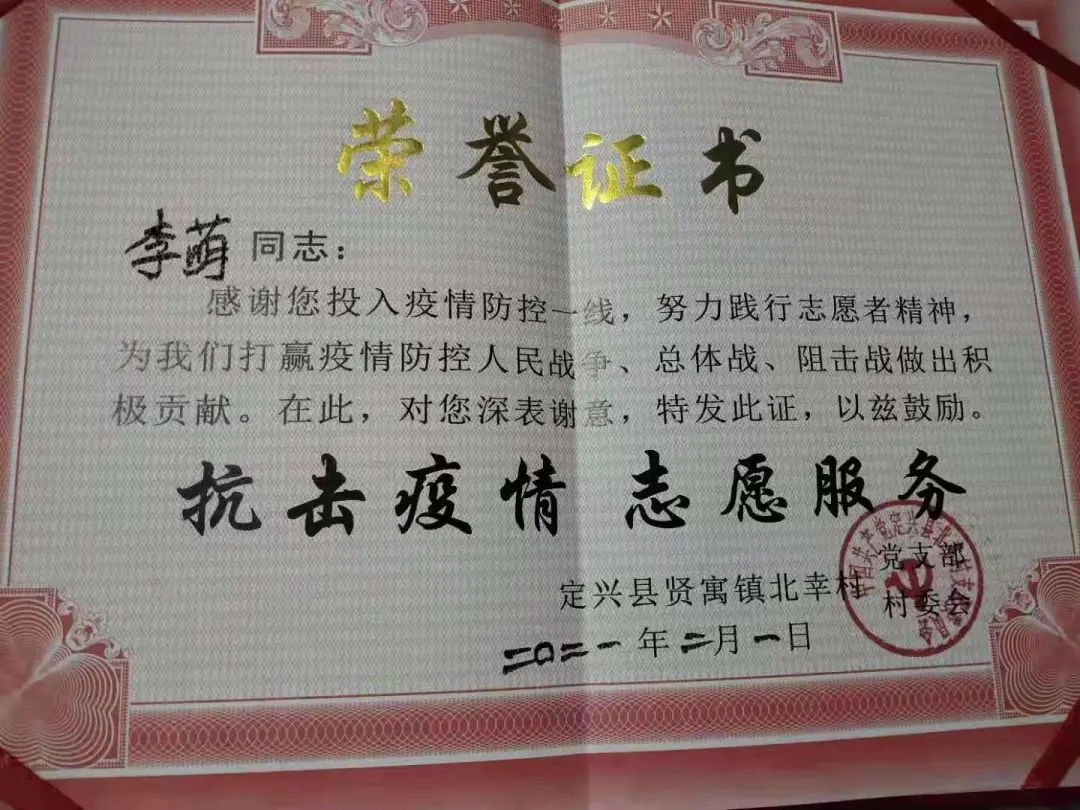 荣誉证书
李萌 同志：
感谢您投入疫情防控一线，努力践行志愿者精神，
为我们打赢疫情防控人民战争、总体战、阻击战做出积
极贡献。在此，对您深表谢意，特发此证，以兹鼓励。
抗击疫情 志愿服务
党支部
定兴县贤寓镇北幸村
村委会
二〇二一年二月一日
中国共产党定兴县北